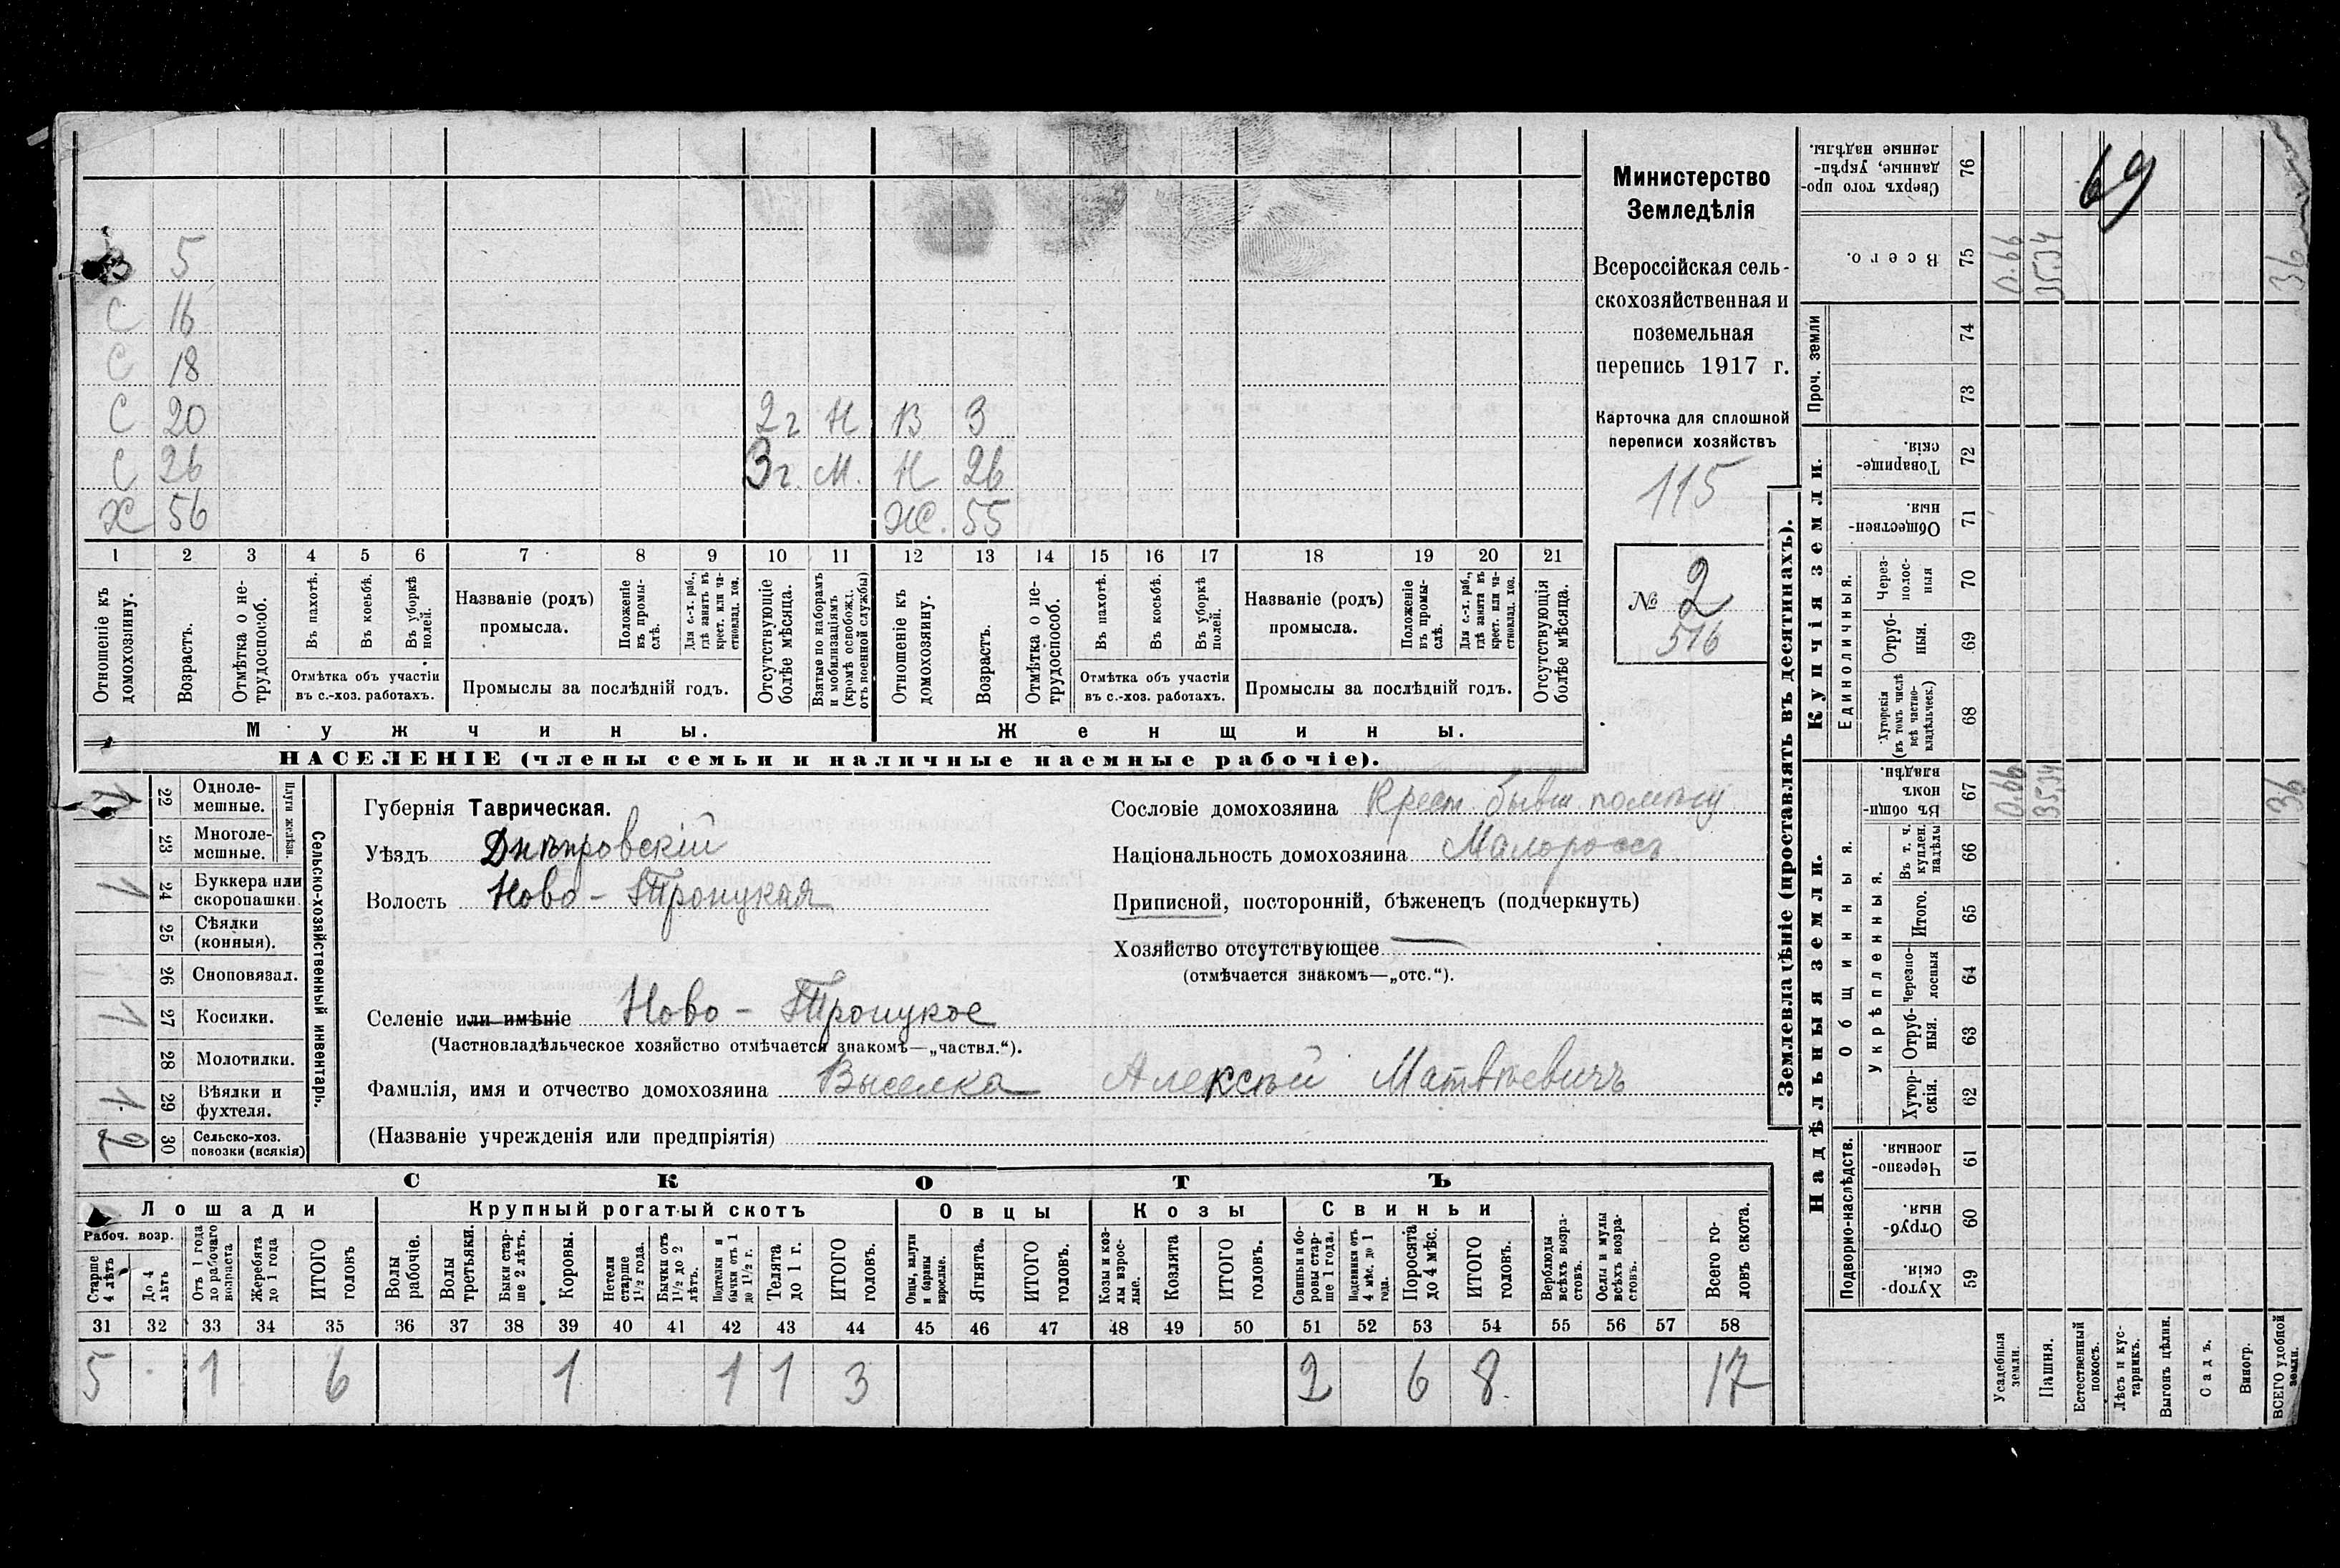 В 5
С 16
С 18
С 20 2 г Н В 3
С 26 3 г. М. Н 26
Х 56 Ж. 55
1 2 3 4 5 6 7 8 9 10 11 12 13 14 15 16 17 18 19 20 21
Отношеніе къ домохозяину.
Возрастъ.
Отмѣтка о не-
трудоспособ.
Въ пахотѣ.
Въ косьбѣ.
Въ уборкѣ полей.
Отмѣтка объ участіи
въ с.-хоз. работахъ.
Названіе (родъ)
промысла.
Положеніе въ промы-
слѣ.
Для с.-х. раб., гдѣ занятъ въ крест. или ча-
стновлад. хоз.
Промыслы за послѣдній годъ.
Отсутствующіе болѣе мѣсяца.
Взятые по наборамъ и мобилизаціямъ (кромѣ освобожд. отъ военной службы)
Отношеніе къ домохозяину.
Возрастъ.
Отмѣтка о не-
трудоспособ.
Въ пахотѣ.
Въ косьбѣ.
Въ уборкѣ полей.
Отмѣтка объ участіи
въ с.-хоз. работахъ.
Названіе (родъ)
промысла.
Положеніе въ промы-
слѣ.
Для с.-х. раб., гдѣ занята въ крест. или ча-
стновлад. хоз.
Промыслы за послѣдній годъ.
Отсутствующія болѣе мѣсяца.
Мужчины. Женщины.
НАСЕЛЕНІЕ (члены семьи и наличные наемные рабочіе).
Министерство
Земледѣлія
Всероссійская сель-
скохозяйственная и
поземельная
перепись 1917 г.
Карточка для сплошной
переписи хозяйствъ
115
№ 2
516
Сельско-хозяйственный инвентарь.
Плуги желѣзн.
1 22 Одноле-
мешные.
23 Многоле-
мешные.
1 24 Буккера или
скоропашки
25 Сѣялки
(конныя).
26 Сноповязал.
1 27 Косилки.
28 Молотилки.
1 29 Вѣялки и
фухтеля.
2 30 Сельско-хоз.
повозки (всякія)
Губернія Таврическая.
Уѣздъ Днѣпровскій
Волость Ново-Троицкая
Сословіе домохозяина Крест. бывш. помѣщ
Національность домохозяина Малороссъ
Приписной, посторонній, бѣженецъ (подчеркнуть)
Хозяйство отсутствующее —
(отмѣчается знакомъ—„отс.“).
Селеніе или имѣніе Ново-Троицкое
(Частновладѣльческое хозяйство отмѣчается знакомъ—„частвл.“).
Фамилія, имя и отчество домохозяина Выселка Алексѣй Матвѣевичъ
(Названіе учрежденія или предпріятія)
СКОТЪ
Лошади Крупный рогатый скотъ Овцы Козы Свиньи
Рабоч. возр.
Старше 4 лѣтъ
До 4 лѣтъ
Отъ 1 года до рабочаго возраста
Жеребята до 1 года
ИТОГО головъ
Волы рабочіе.
Волы третьяки.
Быки стар-
ше 2 лѣтъ.
Коровы.
Нетели старше 1½ года.
Бычки отъ 1½ до 2 лѣтъ.
Подтелки и бычки отъ 1 до 1½ г.
Телята до 1 г.
ИТОГО головъ.
Овцы, валухи и бараны взрослые.
Ягнята.
ИТОГО головъ.
Козы и коз-
лы взрос-
лые.
Козлята
ИТОГО головъ.
Свиньи и бо-
ровы стар-
ше 1 года.
Подсвинки отъ 4 мѣс. до 1 года.
Поросята до 4 мѣс.
ИТОГО головъ.
Верблюды всѣхъ возра-
стовъ.
Ослы и мулы всѣхъ возра-
стовъ.
Всего го-
ловъ скота.
31 32 33 34 35 36 37 38 39 40 41 42 43 44 45 46 47 48 49 50 51 52 53 54 55 56 57 58
5 1 6 1 1 1 3 2 6 8 17
Землевладѣніе (проставлять въ десятинахъ).
Надѣльныя земли. Купчія земли.
Проч. земли
Подворно-наслѣдств.
Общинныя.
Укрѣпленныя.
Единоличныя.
Сверхъ того про-
данные, укрѣп-
ленные надѣлы. 76
69
Всего. 75 0.66 35.34 36
74
73
Товарище-
скія. 72
Обществен-
ныя. 71
Через-
полос-
ныя 70
Отруб-
ныя. 69
Хуторскія (въ томъ числѣ всѣ частно-
владѣльческ.) 68
Въ общи-
номъ владѣн. 67 0.66 35,34 36
Въ т. ч. куплен. надѣлы 66
Итого. 65
Черезпо-
лосныя 64
Отруб-
ныя. 63
Хутор-
скія. 62
Черезпо-
лосныя. 61
Отруб-
ныя. 60
Хутор-
скія. 59
Усадебныя земли.
Пашня.
Естественный покосъ.
Лѣсъ и кус-
тарникъ.
Выгонъ цѣлин.
Садъ.
Виногр.
ВСЕГО удобной земли.